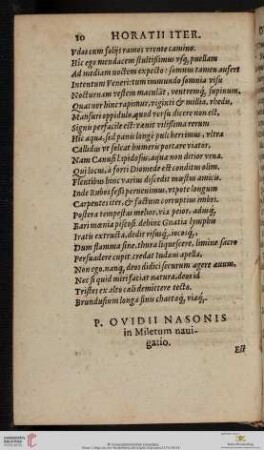 10 HORATII ITER.
Vdos cum folijs ramos vrente camino.
Hic ego mendacem stultissimus vsq́; puellam
Ad mediam noctem expecto: somnus tamen aufert
Intentum Veneri: tum immundo somnia visu
Nocturnam vestem maculāt, ventremq́; supinum.
Quatuor hinc rapimur, viginti & millia, rhedis,
Mansuri oppidulo, quod versu dicere non est,
Signis perfacile est: vænit vilissima rerum
Hic aqua, sed panis longè pulcherrimus, vltra
Callidus vt soleat humeris portare viator.
Nam Canusi lapidosus, aquæ non ditior vrna.
Qui locus, à forti Diomede est conditus olim.
Flentibus hinc varius discedit mœstus amicis.
Inde Rubos fessi peruenimus, vtpote longum
Carpentes iter, & factum corruptius imbri.
Postera tempestas melior, via peior, adusq́;
Bari mœnia piscosi. dehinc Gnatia lymphis
Iratis extructa, dedit risusq́;, iocosq́;,
Dum flamma sine, thura liquescere, limine sacro
Persuadere cupit. credat Iudæus apella,
Non ego. nanq́; deos didici securum agere æuum.
Nec si quid miri faciat natura, deos id
Tristes ex alto cæli demittere tecto.
Brundusium longæ finis chartæq́;, viæq́;.
P. OVIDII NASONIS
in Miletum naui-
gatio.
Est